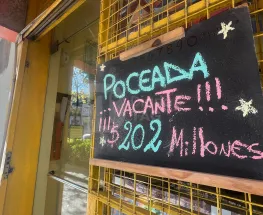 POCEADA
¡¡¡VACANTE!!!
$ 202 Millones